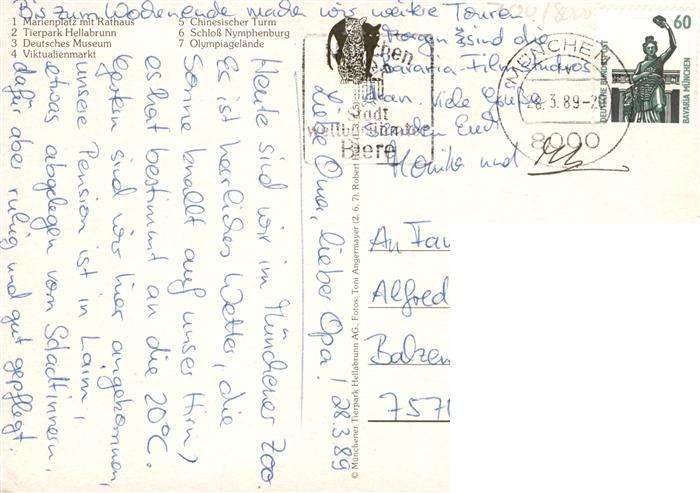 1 Marienplatz mit Rathaus
2 Tierpark Hellabrunn
3 Deutsches Museum
4 Viktualienmarkt
5 Chinesischer Turm
6 Schloß Nymphenburg
7 Olympiagelände
28.3.89
Liebe Oma, lieber Opa!
Heute sind wir im Münchener Zoo.
Es ist herrliches Wetter, die
Sonne knallt auf unser Hirn,
es hat bestimmt an die 20°C.
Gestern sind wir hier angekommen,
unsere Pension ist in Laim,
etwas abgelegen vom Stadtinnern,
dafür aber ruhig und gut gepflegt.
Bis zum Wochenende machen wir weitere Touren
Morgen sind die
Bavaria-Film-Studios
dran. Viele Grüße
Euch
Monika und
© Münchener Tierpark Hellabrunn AG, Fotos: Toni Angermayer (2, 6, 7), Robert
Stadt
Biere
MÜNCHEN
.3.89-20
8000
60
DEUTSCHE BUNDESPOST
BAVARIA MÜNCHEN
An Fam
Alfred
Balzen
757